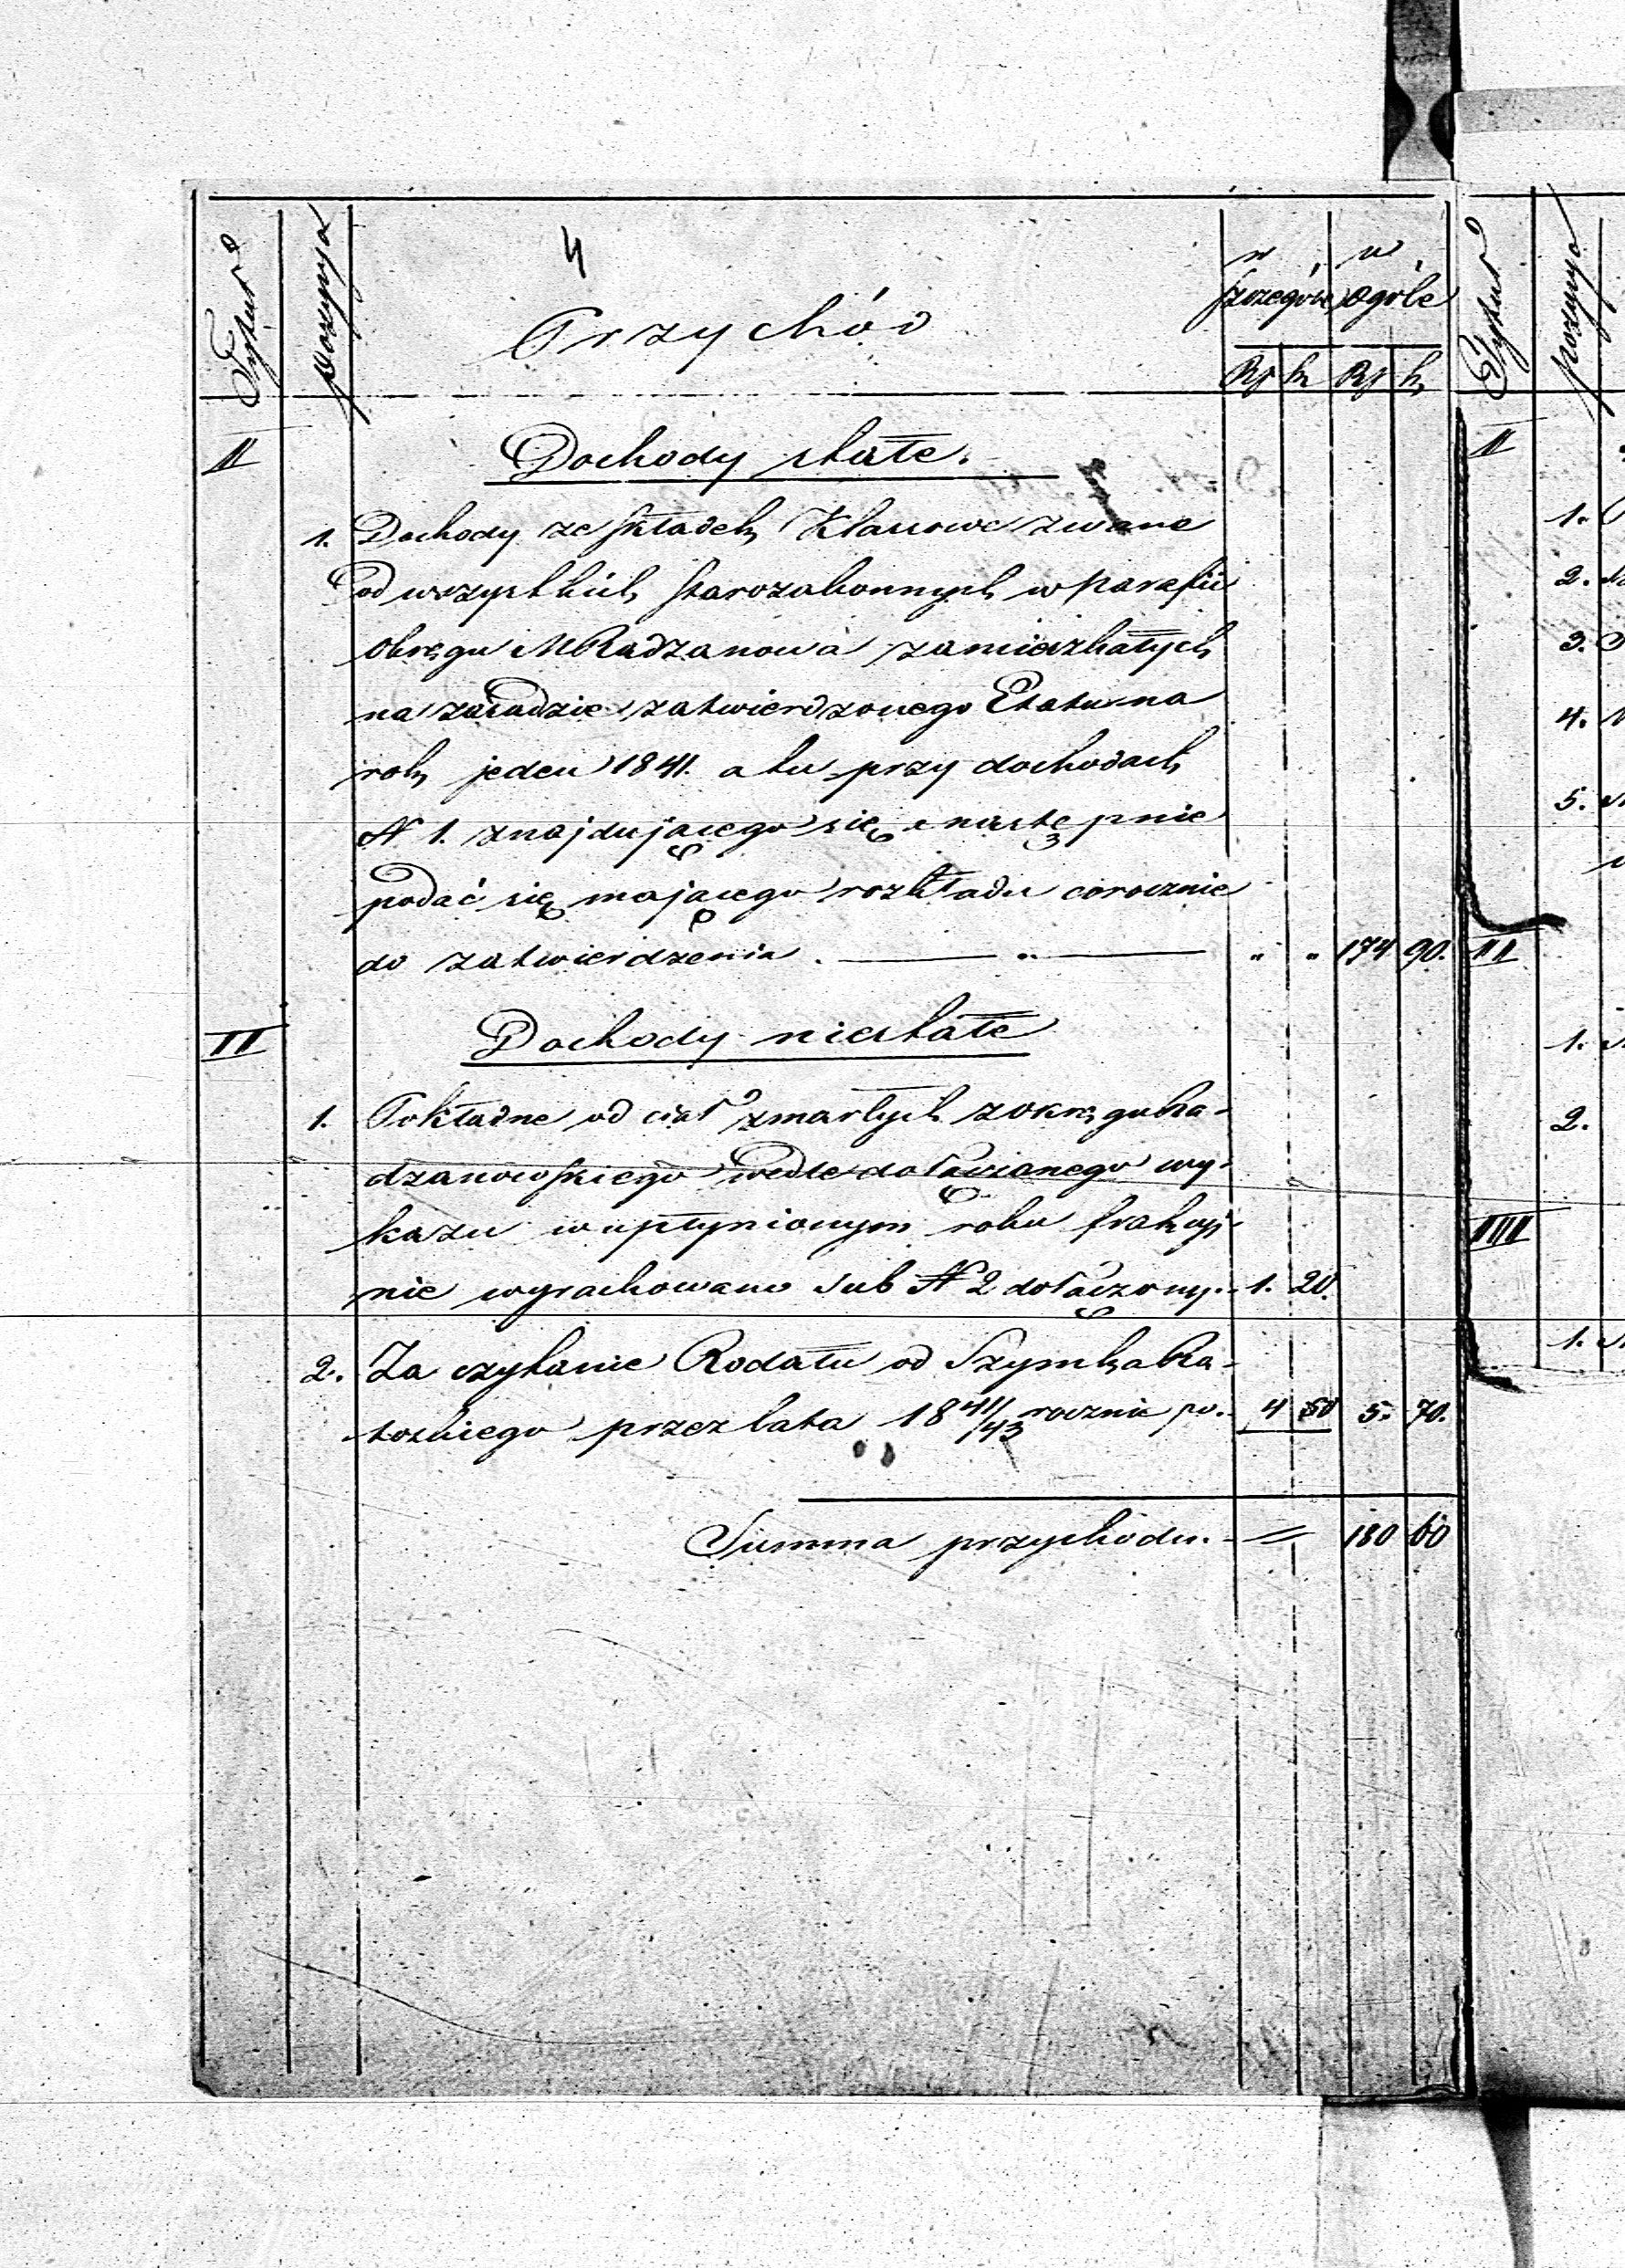 4
Tytuł
pozycya
Przychód
w szczególe
w ogóle
Rs k Rs k
II
Dochody stałe.
1. Dochody ze składek Klasowe zwane
od wszystkich starozakonnych w parafii
Okręgu M Radzanowa zamieszkałych
na zasadzie zatwierdzonego Etatu na
rok jeden 1841. a tu przy dochodach
N 1. znajdującego się a następnie
podać się mającego rozkładu corocznie
do zatwierdzenia . „ „ „ 174 90.
II
Dochody niestałe
1. Pokładne od ciał zmarłych z okręgu Ra-
dzanowskiego wedle wy-
kazu w upłynionym roku frakcyj-
nie wyrachowane sub N 2 dołączony. 1. 20.
2. Za czytanie Rodału od Szymka Ra-
przez lata 18 41/43 rocznie po. 4 50 5. 70.
Summa przychodu. 180 60
Tytuł
pozycya
II
1.
2.
3.
4.
5.
II
1.
2.
III
1.